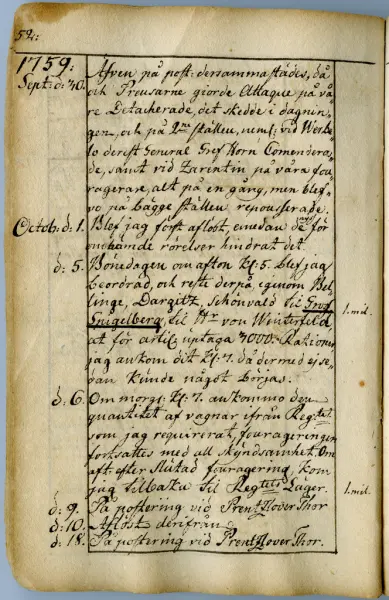 52:
1759:
Sept: d: 30. Äfven på post: dersammastädes, då
och Preusarne giorde Attaque på vå
re Detacherade, det skedde i dagnin,
gen, och på 2ne ställen, neml: vid Werbe
lo derest General Gref Horn Comendera,
de, samt vid Zarentin på våra fou,
ragerare, alt på en gång, men blef,
vo på bägge ställen repousserade.
Octob: d: 1. Blef jag först aflöst, emedan de för
ändhämde rörelser hindrat det.
d: 5. Bönedagen om afton Kl: 5. blef jag
beordrad, och reste derpå, igenom Bel
linge, Dargitz, Schönvald til Gros
Spigelberg, til Hr von Winterfeld 1. mil.
at för artil: uptaga 3000. Rationer
jag ankom dit Kl: 7. då dermed ej se,
dan kunde något börjas.
d: 6. Om morg: Kl: 7. ankommo den
quantitet af vagnar ifrån Regtet
som jag requirerat, fourageringen
fortsattes med all skyndsamhet. Om
aft efter slutad fouragering, kom
jag tilbaka til Regtets Läger. 1. mil.
d: 9. På postering vid Prentzlover Thor
d: 10. Aflöst derifrån
d: 18. På postering vid Prentzlover Thor.